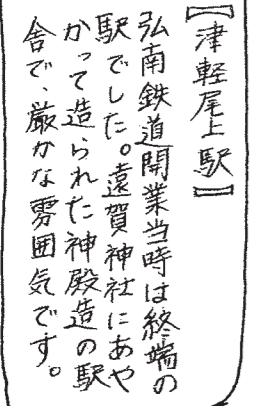 【津軽尾上駅】
弘南鉄道開業当時は終端の
駅でした。遠賀神社にあや
かって造られた神殿造の駅
舎で、厳かな雰囲気です。